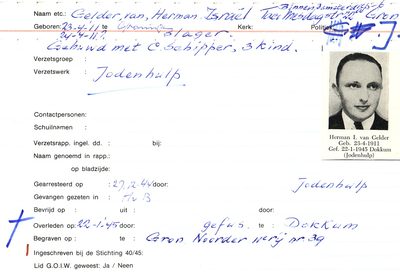 Binnendamsterdiep
Naam etc.: Gelder, van, Herman. Israël Gron
Geboren: 23-4-11 te Groningen Kerk: Politiek
24-4-11? Slager.
Gehuwd met C. Schipper, 3 kind.
Verzetsgroep :
Verzetswerk : Jodenhulp
Contactpersonen:
Schuilnamen :
Verzetsrapp. ingel. dd. : bij:
Naam genoemd in rapp.:
op bladzijde:
Gearresteerd op : 27.12.44 door: Jodenhulp
Gevangen gezeten in : HvB
Bevrijd op : uit : door:
Overleden op: 22-1-45 door: gefus. te : Dokkum
Begraven op : te : Gron Noorder nr 39
Ingeschreven bij de Stichting 40/45:
Lid G.O.I.W. geweest: Ja / Neen
Herman I. van Gelder
Geb. 23-4-1911
Gef. 22-1-1945 Dokkum
(Jodenhulp)